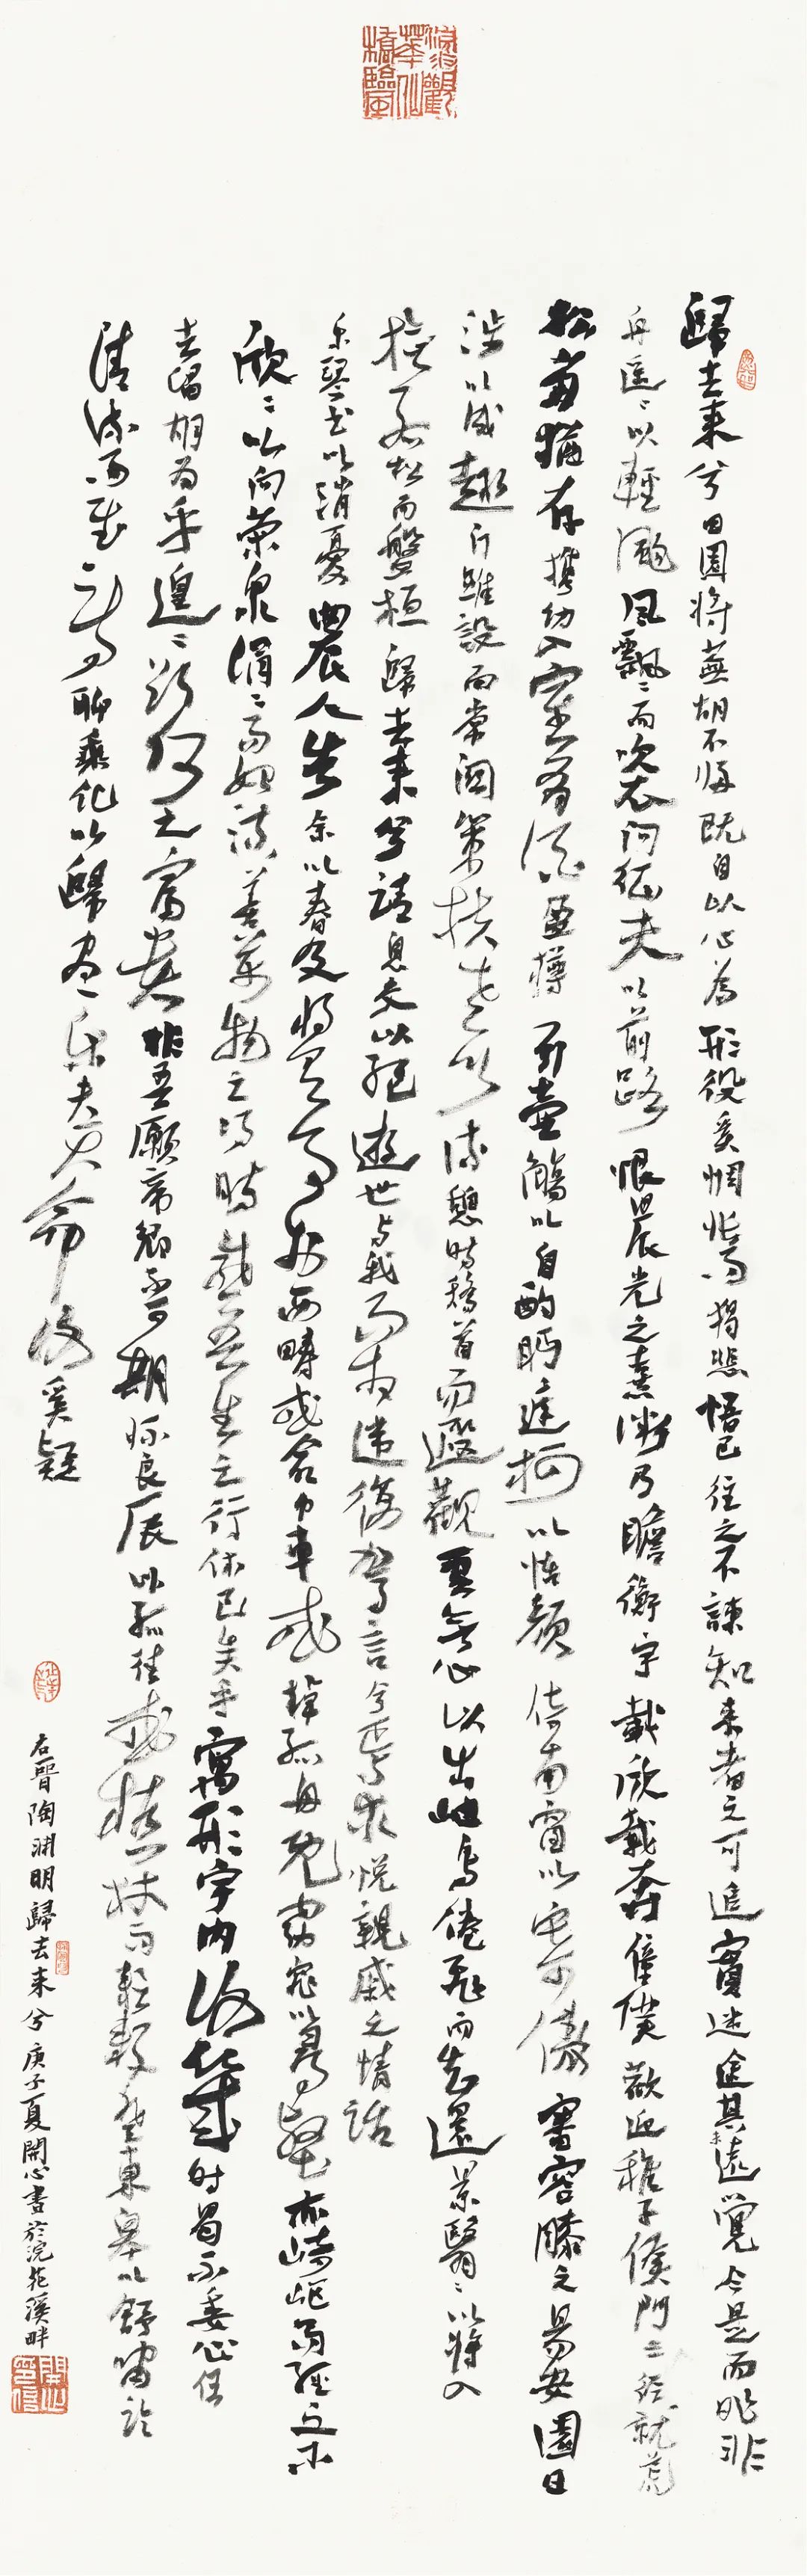 歸去来兮田園将蕪胡不歸既自以心為形役奚惆悵而獨悲悟已往之不諫知来者之可追實迷途其未遠覺今是而昨非
舟遥〻以輕颺風飄〻而吹衣问征夫以前路恨晨光之熹微乃瞻衡宇載欣載奔僮僕歡迎稚子候門三径就荒
松菊猶存携幼入室有酒盈樽引壶觴以自酌眄庭柯以怡顔倚南窗以寄傲審容膝之易安園日
涉以成趣门雖設而常関策扶老以流憩時矯首而遐觀雲無心以出岫鳥倦飛而知還景翳〻以将入
撫孤松而盤桓歸去来兮請息交以绝遊世与我而相違復駕言兮焉求悦親戚之情話
乐琴书以消憂農人告余以春及将有事於西疇或命巾車或棹孤舟既窈窕以尋壑亦崎岖而經丘木
欣〻以向荣泉涓〻而始流善萬物之得時感吾生之行休已矣乎寓形宇内復幾时曷不委心任
去留胡为乎遑〻欲何之富貴非吾願帝鄉不可期懷良辰以孤往或植杖而耘耔登東皋以舒嘯臨
清流而賦詩聊乘化以歸盡乐夫天命復奚疑
右晋陶渊明歸去来兮庚子夏開心書於浣花溪畔